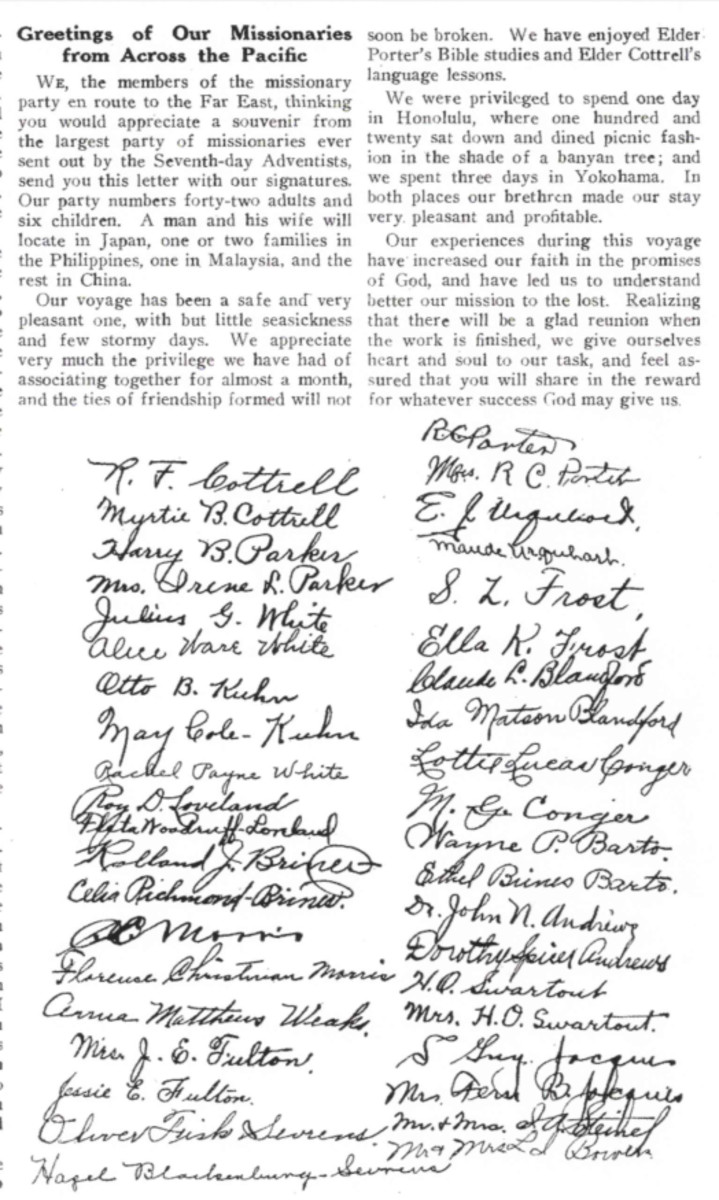 Greetings of Our Missionaries
from Across the Pacific
WE, the members of the missionary
party en route to the Far East, thinking
you would appreciate a souvenir from
the largest party of missionaries ever
sent out by the Seventh-day Adventists,
send you this letter with our signatures.
Our party numbers forty-two adults and
six children. A man and his wife will
locate in Japan, one or two families in
the Philippines, one in Malaysia, and the
rest in China.
Our voyage has been a safe and very
pleasant one, with but little seasickness
and few stormy days. We appreciate
very much the privilege we have had of
associating together for almost a month,
and the ties of friendship formed will not
soon be broken. We have enjoyed Elder
Porter's Bible studies and Elder Cottrell's
language lessons.
We were privileged to spend one day
in Honolulu, where one hundred and
twenty sat down and dined picnic fash-
ion in the shade of a banyan tree; and
we spent three days in Yokohama. In
both places our brethren made our stay
very pleasant and profitable.
Our experiences during this voyage
have increased our faith in the promises
of God, and have led us to understand
better our mission to the lost. Realizing
that there will be a glad reunion when
the work is finished, we give ourselves
heart and soul to our task, and feel as-
sured that you will share in the reward
for whatever success God may give us.
R. F. Cottrell
Myrtie B. Cottrell
Harry B. Parker
Mrs. Irene L. Parker
Julius G. White
Alice Ware White
Otto B. Kuhn
May Cole-Kuhn
Rachel Payne White
Roy D. Loveland
Woodruff-Loveland
Rolland J. Brines
Celia Richmond-Brines.
Morris
Florence Christman Morris
Anna Matthews Weaks.
Mrs. J. E. Fulton.
Jessie E. Fulton.
Oliver Fisk Sevrens
Hazel Blackenburg-Sevrens
R C Porter
Mrs. R C Porter
E. J. Urquhart,
Maude Urquhart.
S. L. Frost,
Ella K. Frost
Claude L. Blandford
Ida Matson Blandford
Lottie Lucas Conger
M. G. Conger
Wayne P. Barto.
Ethel Barto.
Dr. John N. Andrews
Dorothy Spicer Andrews
H.O. Swartout
Mrs. H.O. Swartout.
S Guy Jacques
Mrs. Fern B. Jacques
Mr. & Mrs. Steinel
Mr & Mrs Bowers